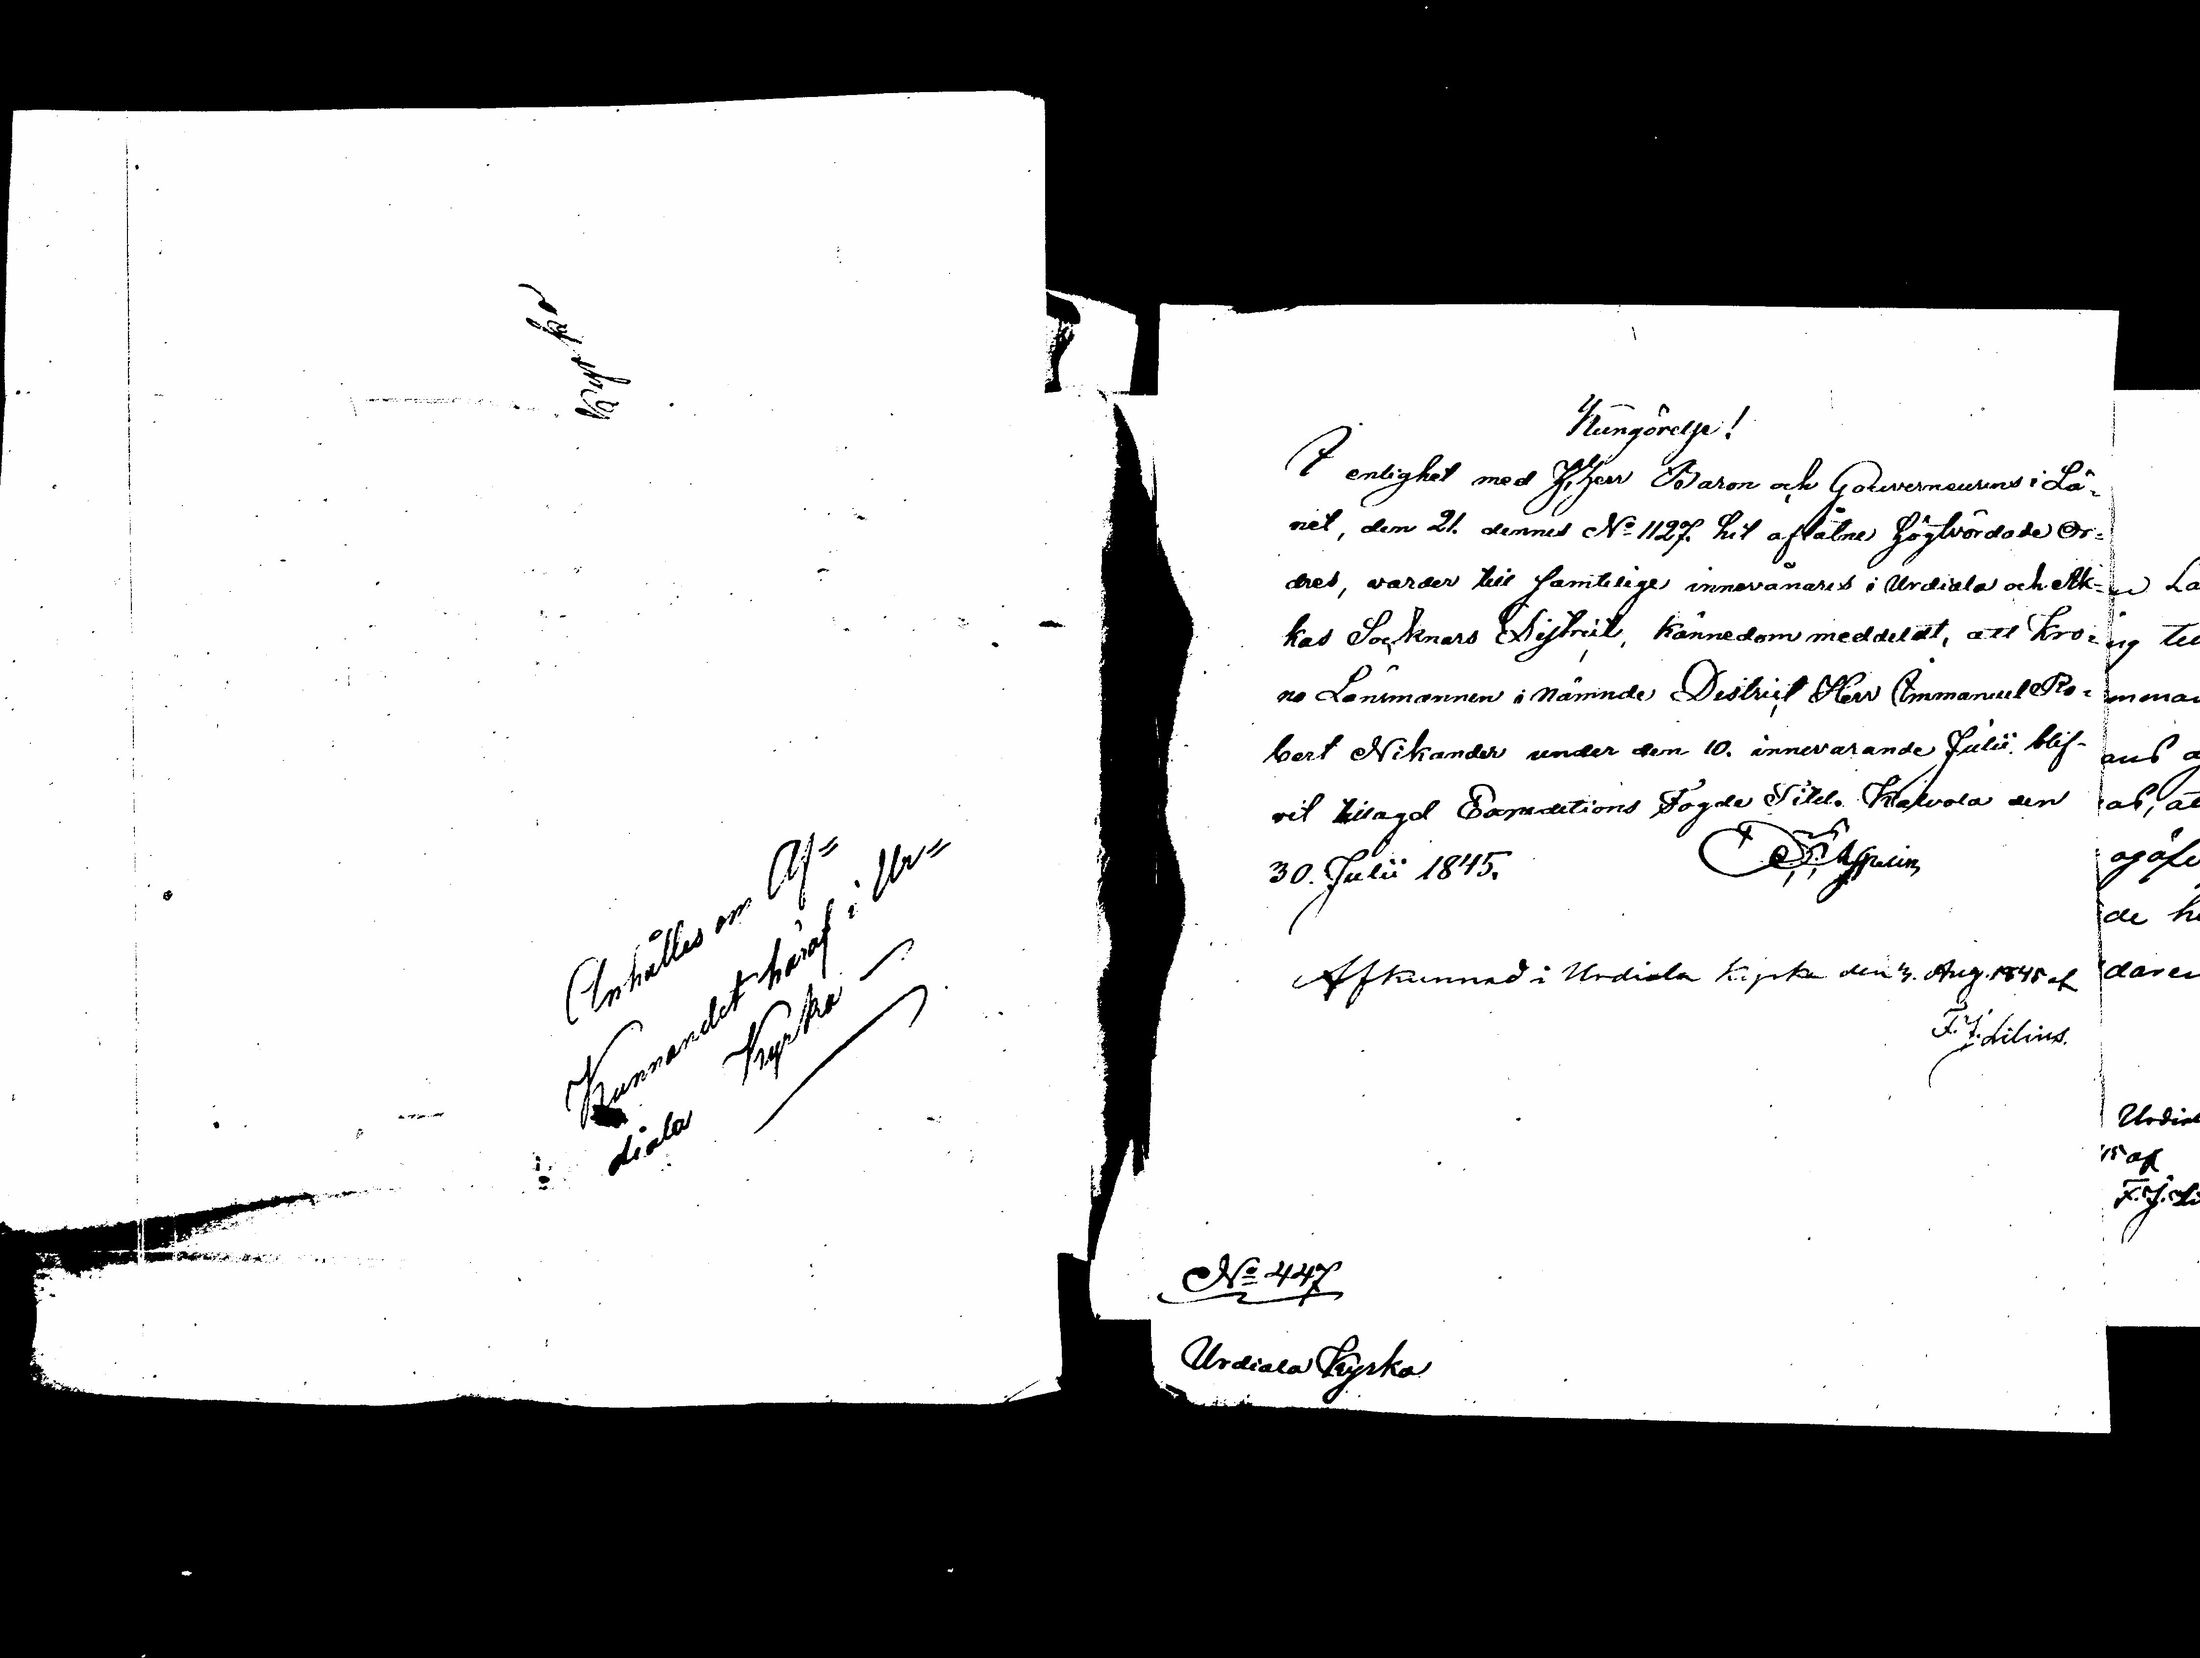 Anhålles om Af=
Kunnandet häraf i Ur=
diala Kyrka
Kungörelse!
I enlighet med H. Herr Baron och Gouverneurens i Lä-
net, den 21. dennes No 1127. hit aflåtne högtvördade Or=
dres, varder till samtelige innevånares i Urdiala och Ak=
kas Socknars District, kännedom meddeldt, att Kro=
no Länsmannen i nämnde District Herr Emmanuel Ro=
bert Nikander under den 10. innevarande Julii blif-
vit tillagd Expeditions Fogde Titel. Kalvola den
30. Julii 1845.
Afkunnad i Urdiala Kyrka den 3. Aug. 1845 af
F. J. Lilius.
No 447
Urdiala Kyrka
de
F. J. Li